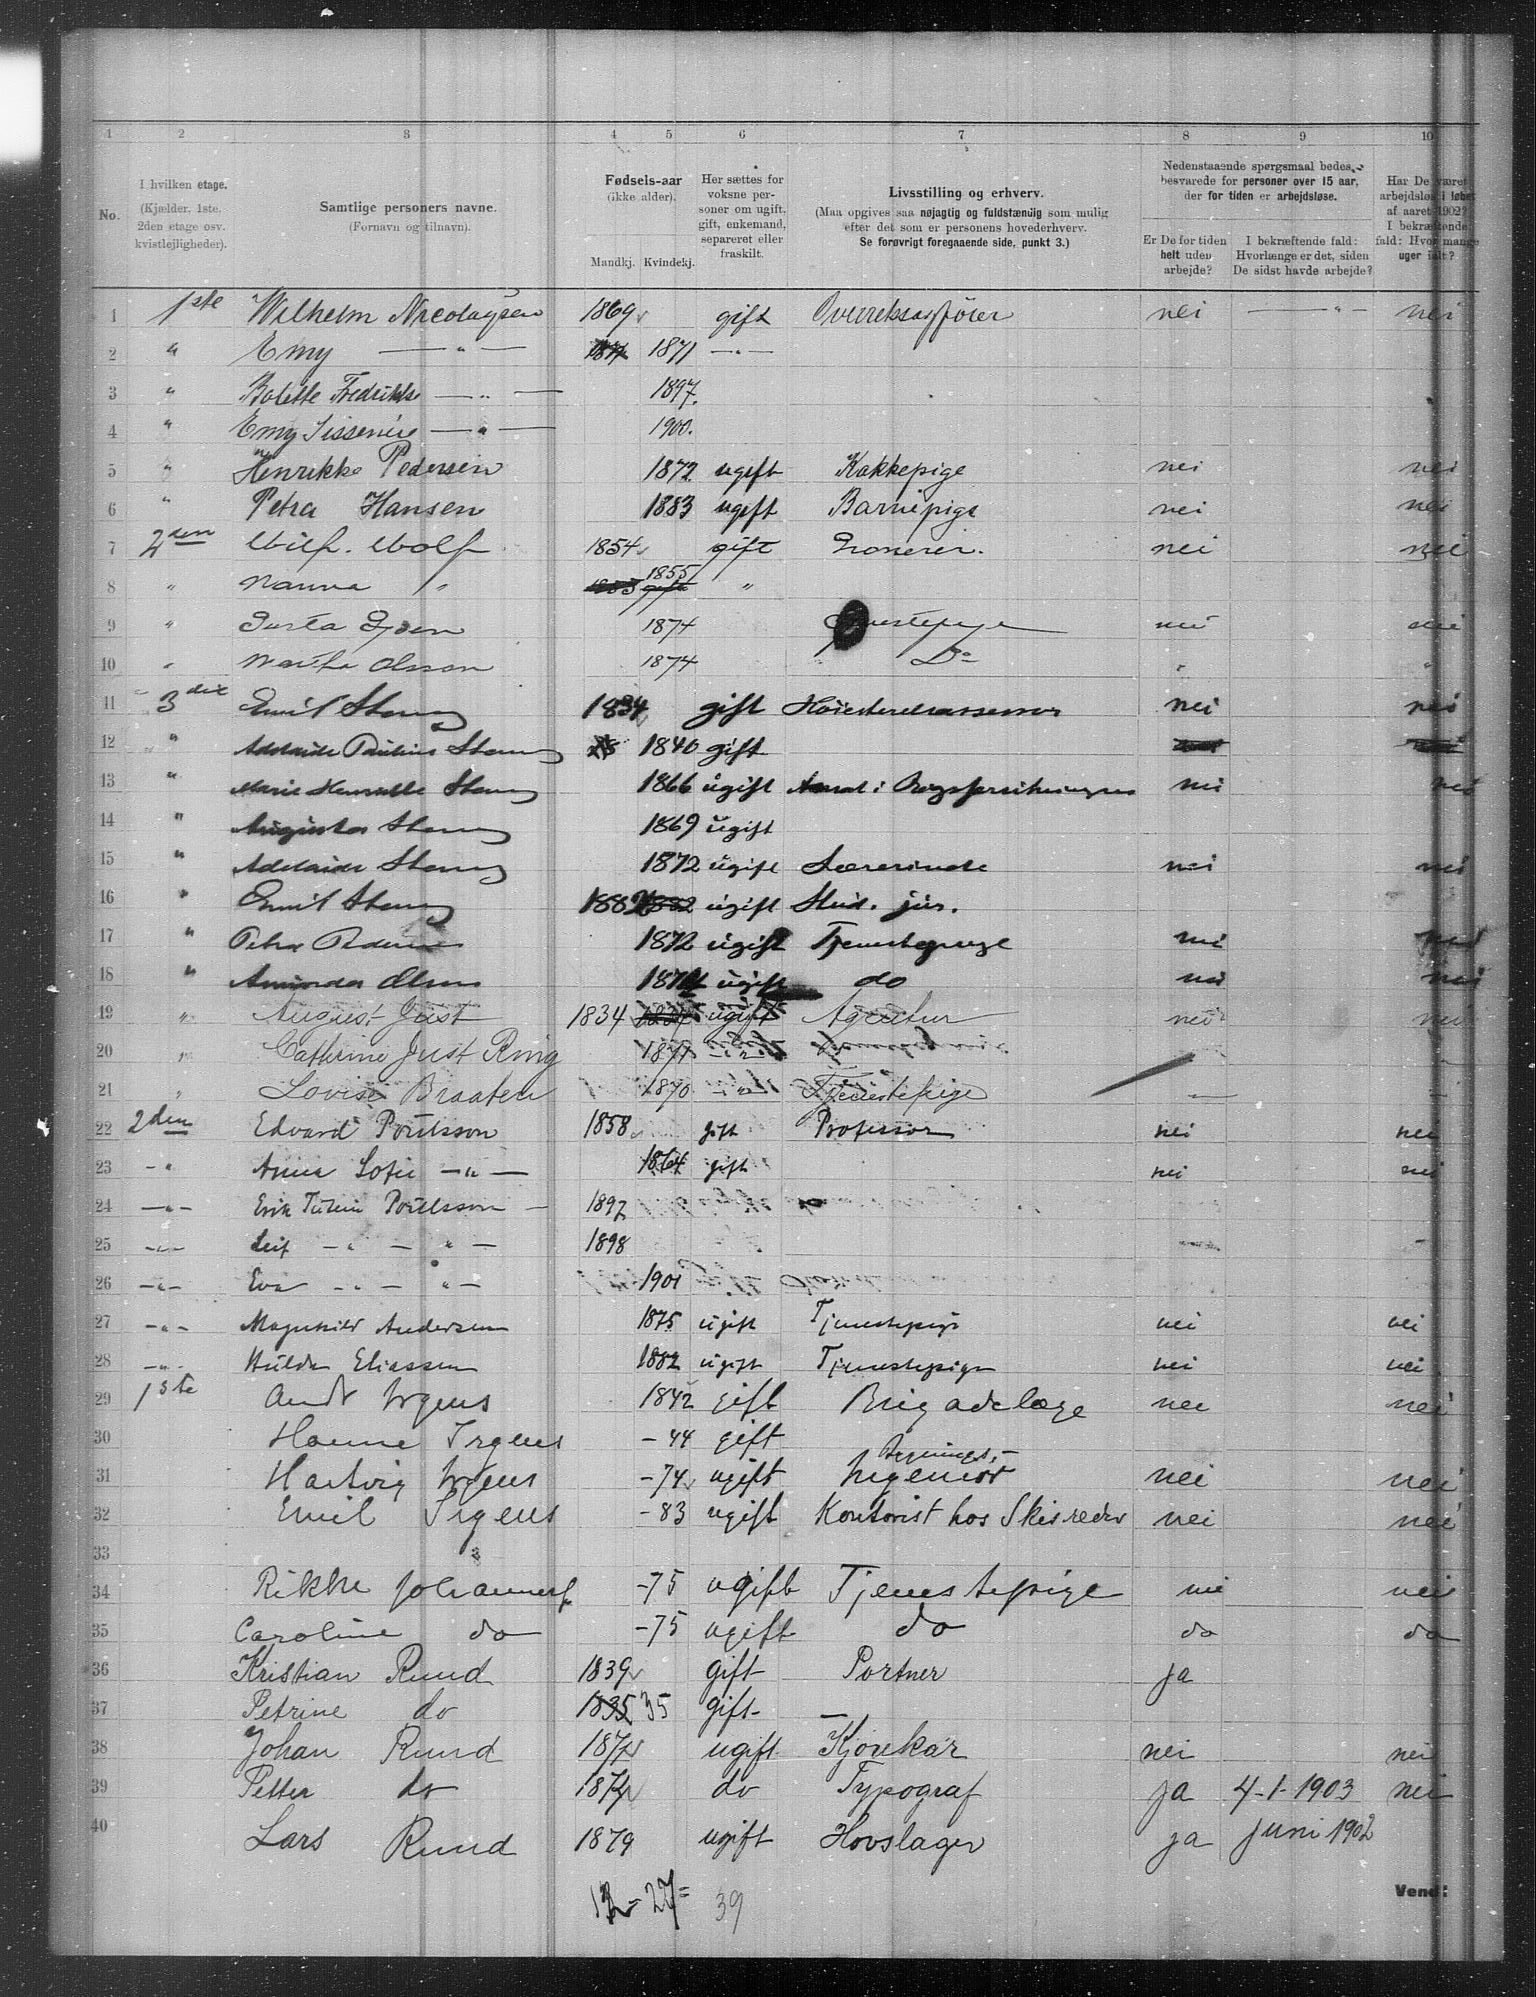 1 2 3 4 5 6 7 8 9 10
No.
I hvilken etage.
(Kjælder, 1ste.
2den etage osv.
kvistlejligheder).
Samtlige personers navne.
(Fornavn og tilnavn).
Fødsels-aar
(ikke alder).
Mandkj. Kvindekj.
Her sættes for
voksne per-
soner om ugift,
gift, enkemand,
separeret eller
fraskilt.
Livsstilling og erhverv.
(Maa opgives saa nøjagtig og fuldstændig som mulig
efter det som er personens hovederhverv.
Se forøvrigt foregaaende side, punkt 3.)
Nedenstaaende spørgsmaal bedes
besvarede for personer over 15 aar,
der for tiden er arbejdsløse.
Er De for tiden
helt uden
arbejde?
I bekræftende fald:
Hvorlænge er det, siden
De sidst havde arbejde?
Har De været
arbejdsløs i løbet
af aaret 1902?
I bekræftende
fald: Hvor mange
uger ialt?
1 1ste Wilhelm Nicolaysen 1869 gift nei — " — nei
2 " Emy — " — 1871 1871 — " —
3 " Bolette Fredrikke — " — 1897.
4 " Emy — " — 1900.
5 " Henrikke Pedersen 1872 ugift Kokkepige nei nei
6 " Petra Hansen 1883 ugift Barnepige nei nei
7 2den Wilh. Wolf 1854 gift nei nei
8 " Nanna " 1855 "
9 " 1874 nei nei
10 " Martha Olsson 1874 Do " "
11 3die Emil Stang 1834 gift Høiesteretsassessor nei nei
12 " Adelaide Pauline Stang 1840 gift
13 " Marie Henriette Stang 1866 ugift nei nei
14 " Augusta Stang 1869 ugift
15 " Adelaide Stang 1872 ugift Lærerinde nei nei
16 " Emil Stang 1882 1882 ugift Stud. jur.
17 " Petra Pedersen 1872 ugift Tjenestepige nei nei
18 " Amanda Olsen ugift do nei nei
19 " August Just 1834 1834 ugift Agentur nei nei
20 " Cathrine Just Ring 1871 — " —
21 " Lovise Braaten 1870 — " — Tjenestepige — —
22 2den Edvard Poulsson 1858 gift Professor nei nei
23 — " Anna Sofie — " — 1864 gift nei nei
24 — " — Erik Poulsson — 1897
25 — " — Leif — " — " — 1898
26 — " — Eva — " — " — 1901
27 — " — Magnhild Andersen 1875 ugift Tjenestepige nei nei
28 — " — Hulda Eliassen 1882 ugift Tjenestepige nei nei
29 1ste Irgens 1842 gift Brigadelæge nei nei
30 Hanne Irgens - 44 gift
31 Hartvig Irgens - 74 ugift Bygnings-
Ingeniør nei nei
32 Emil Irgens - 83 ugift Kontorist hos Skibsreder nei nei
33
34 Rikke Johannesf -75 ugift Tjenestepige nei nei
35 Caroline do -75 ugift do do do
36 Kristian Ruud 1839 gift Portner ja
37 Petrine do 1835 35 gift —
38 Johan Ruud ugift Kjørekar nei nei
39 Petter do do Typograf ja 4-1-1903 nei
40 Lars Ruud 1879 ugift Hovslager ja juni 1902
12 - 27 = 39
Vend: